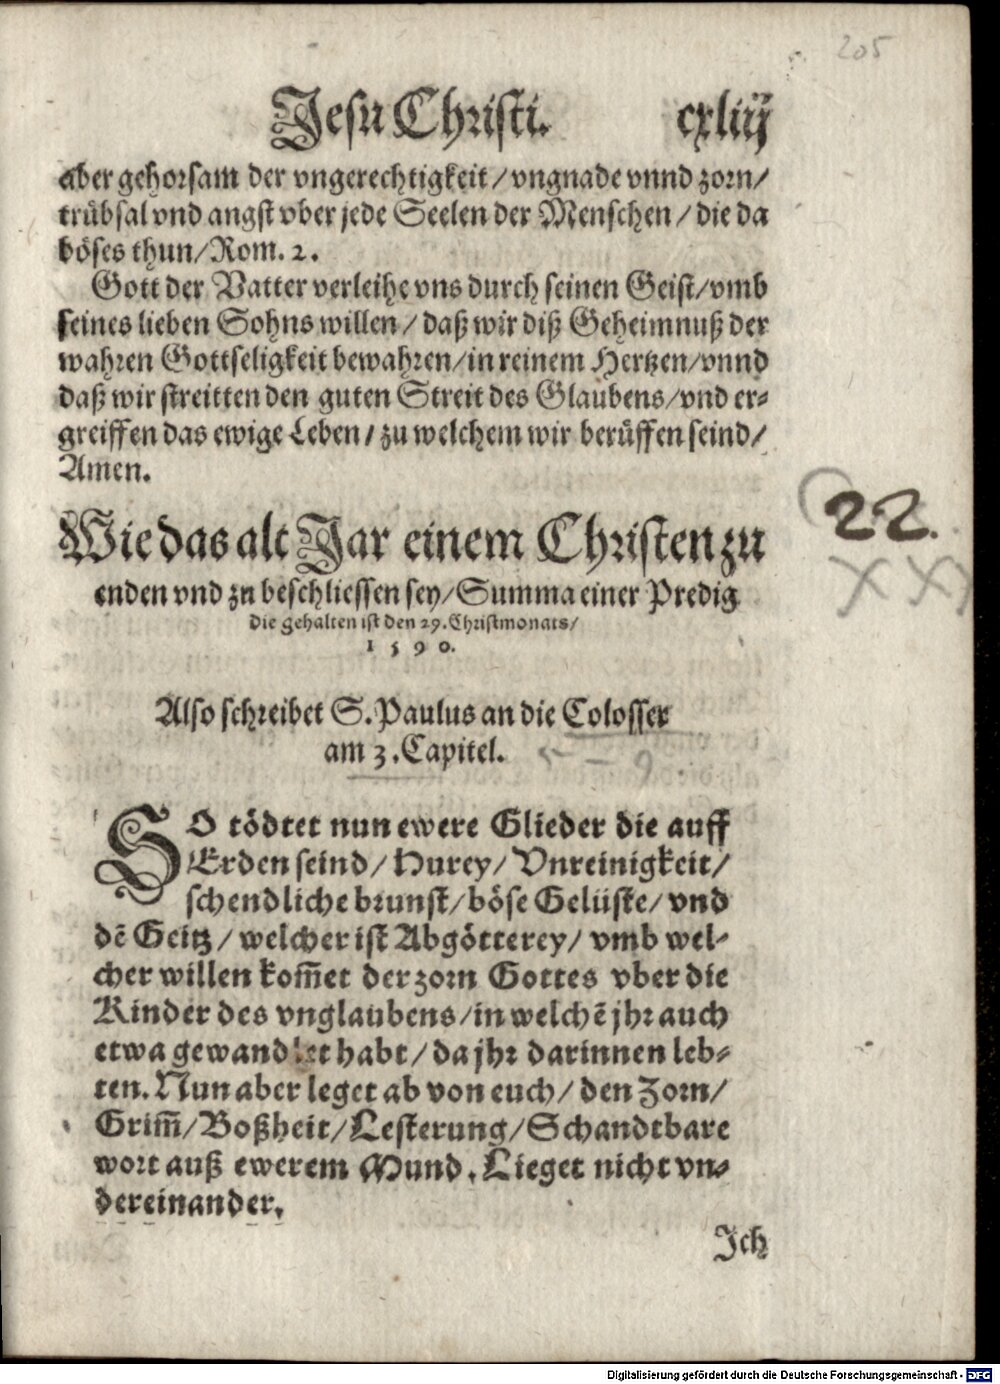 205
Jesu Christi. cxliij
aber gehorsam der vngerechtigkeit / vngnade vnnd zorn /
trübsal vnd angst vber jede Seelen der Menschen / die da
böses thun / Rom. 2.
Gott der Vatter verleihe vns durch seinen Geist / vmb
seines lieben Sohns willen / daß wir diß Geheimnuß der
wahren Gottseligkeit bewahren / in reinem Hertzen / vnnd
daß wir streitten den guten Streit des Glaubens / vnd er-
greiffen das ewige Leben / zu welchem wir berüffen seind /
Amen.
22.
XXX
Wie das alt Jar einem Christen zu
enden vnd zu beschliessen sey / Summa einer Predig
die gehalten ist den 29. Christmonats /
1590.
Also schreibet S. Paulus an die Colosser
am 3. Capitel. 5 - 9
SO tödtet nun ewere Glieder die auff
Erden seind / Hurey / Vnreinigkeit /
schendliche brunst / böse Gelüste / vnd
dē Geitz / welcher ist Abgötterey / vmb wel-
cher willen kom̄et der zorn Gottes vber die
Kinder des vnglaubens / in welchē jhr auch
etwa gewandlet habt / da jhr darinnen leb-
ten. Nun aber leget ab von euch / den Zorn /
Grim̄ / Boßheit / Lesterung / Schandtbare
wort auß ewerem Mund. Lieget nicht vn-
dereinander.
Jch
Digitalisierung gefördert durch die Deutsche Forschungsgemeinschaft - DFG